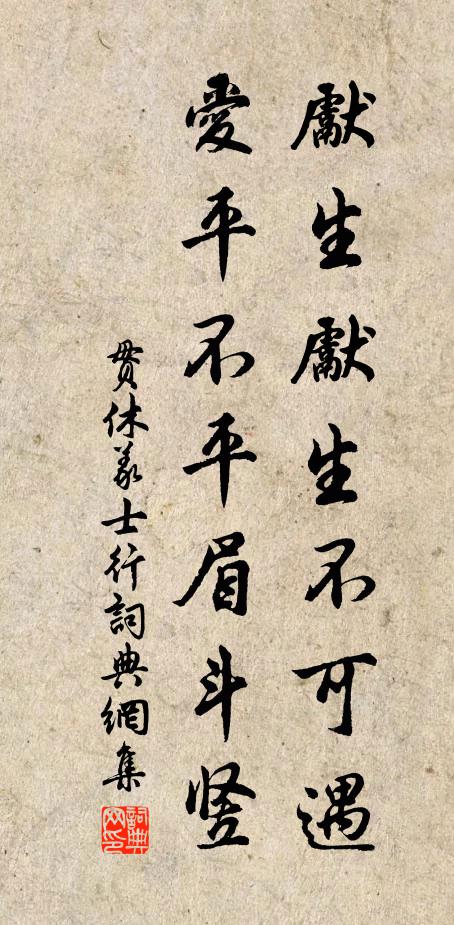 獻生獻生不可遇
愛平不平眉斗豎
貫休義士行詞典網集
詞典网印